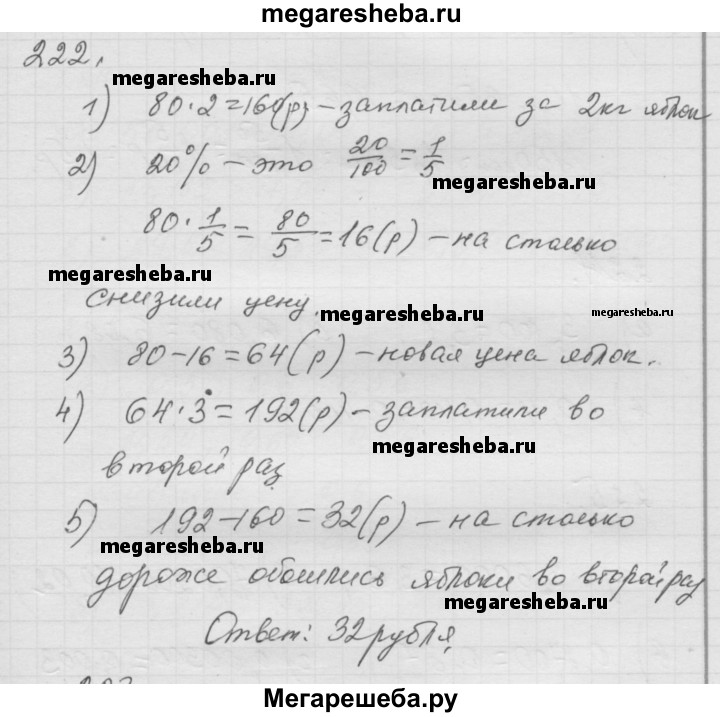 megaresheba.ru
222.
megaresheba.ru
1) 80·2=160(р) – заплатили за 2кг яблок
2) 20% – это 20/100 = 1/5
megaresheba.ru
80·1/5 = 80/5 = 16(р) – на столько
megaresheba.ru
снизили цену.
megaresheba.ru
3) 80–16=64(р) – новая цена яблок.
4) 64·3=192(р) – заплатили во
megaresheba.ru
второй раз
5) 192–160=32(р) – на столько
megaresheba.ru
дороже обошлись яблоки во второй раз
megaresheba.ru
Ответ: 32 рубля.
megaresheba.ru
Мегарешеба.ру